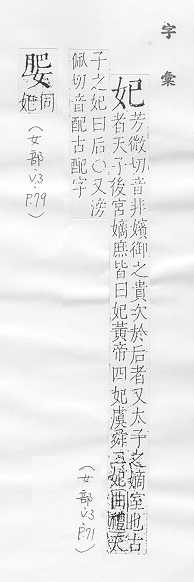 字彙
妃
芳微切音非嬪御之貴次於后者又太子之嫡室也古
者天子後宮嫡庶皆曰妃黃帝四妃虞舜三妃曲禮天
子之妃曰后○又滂
佩切音配古配字
(女部 V.3 P.71)
同
妃
(女部 V.3. P.79)